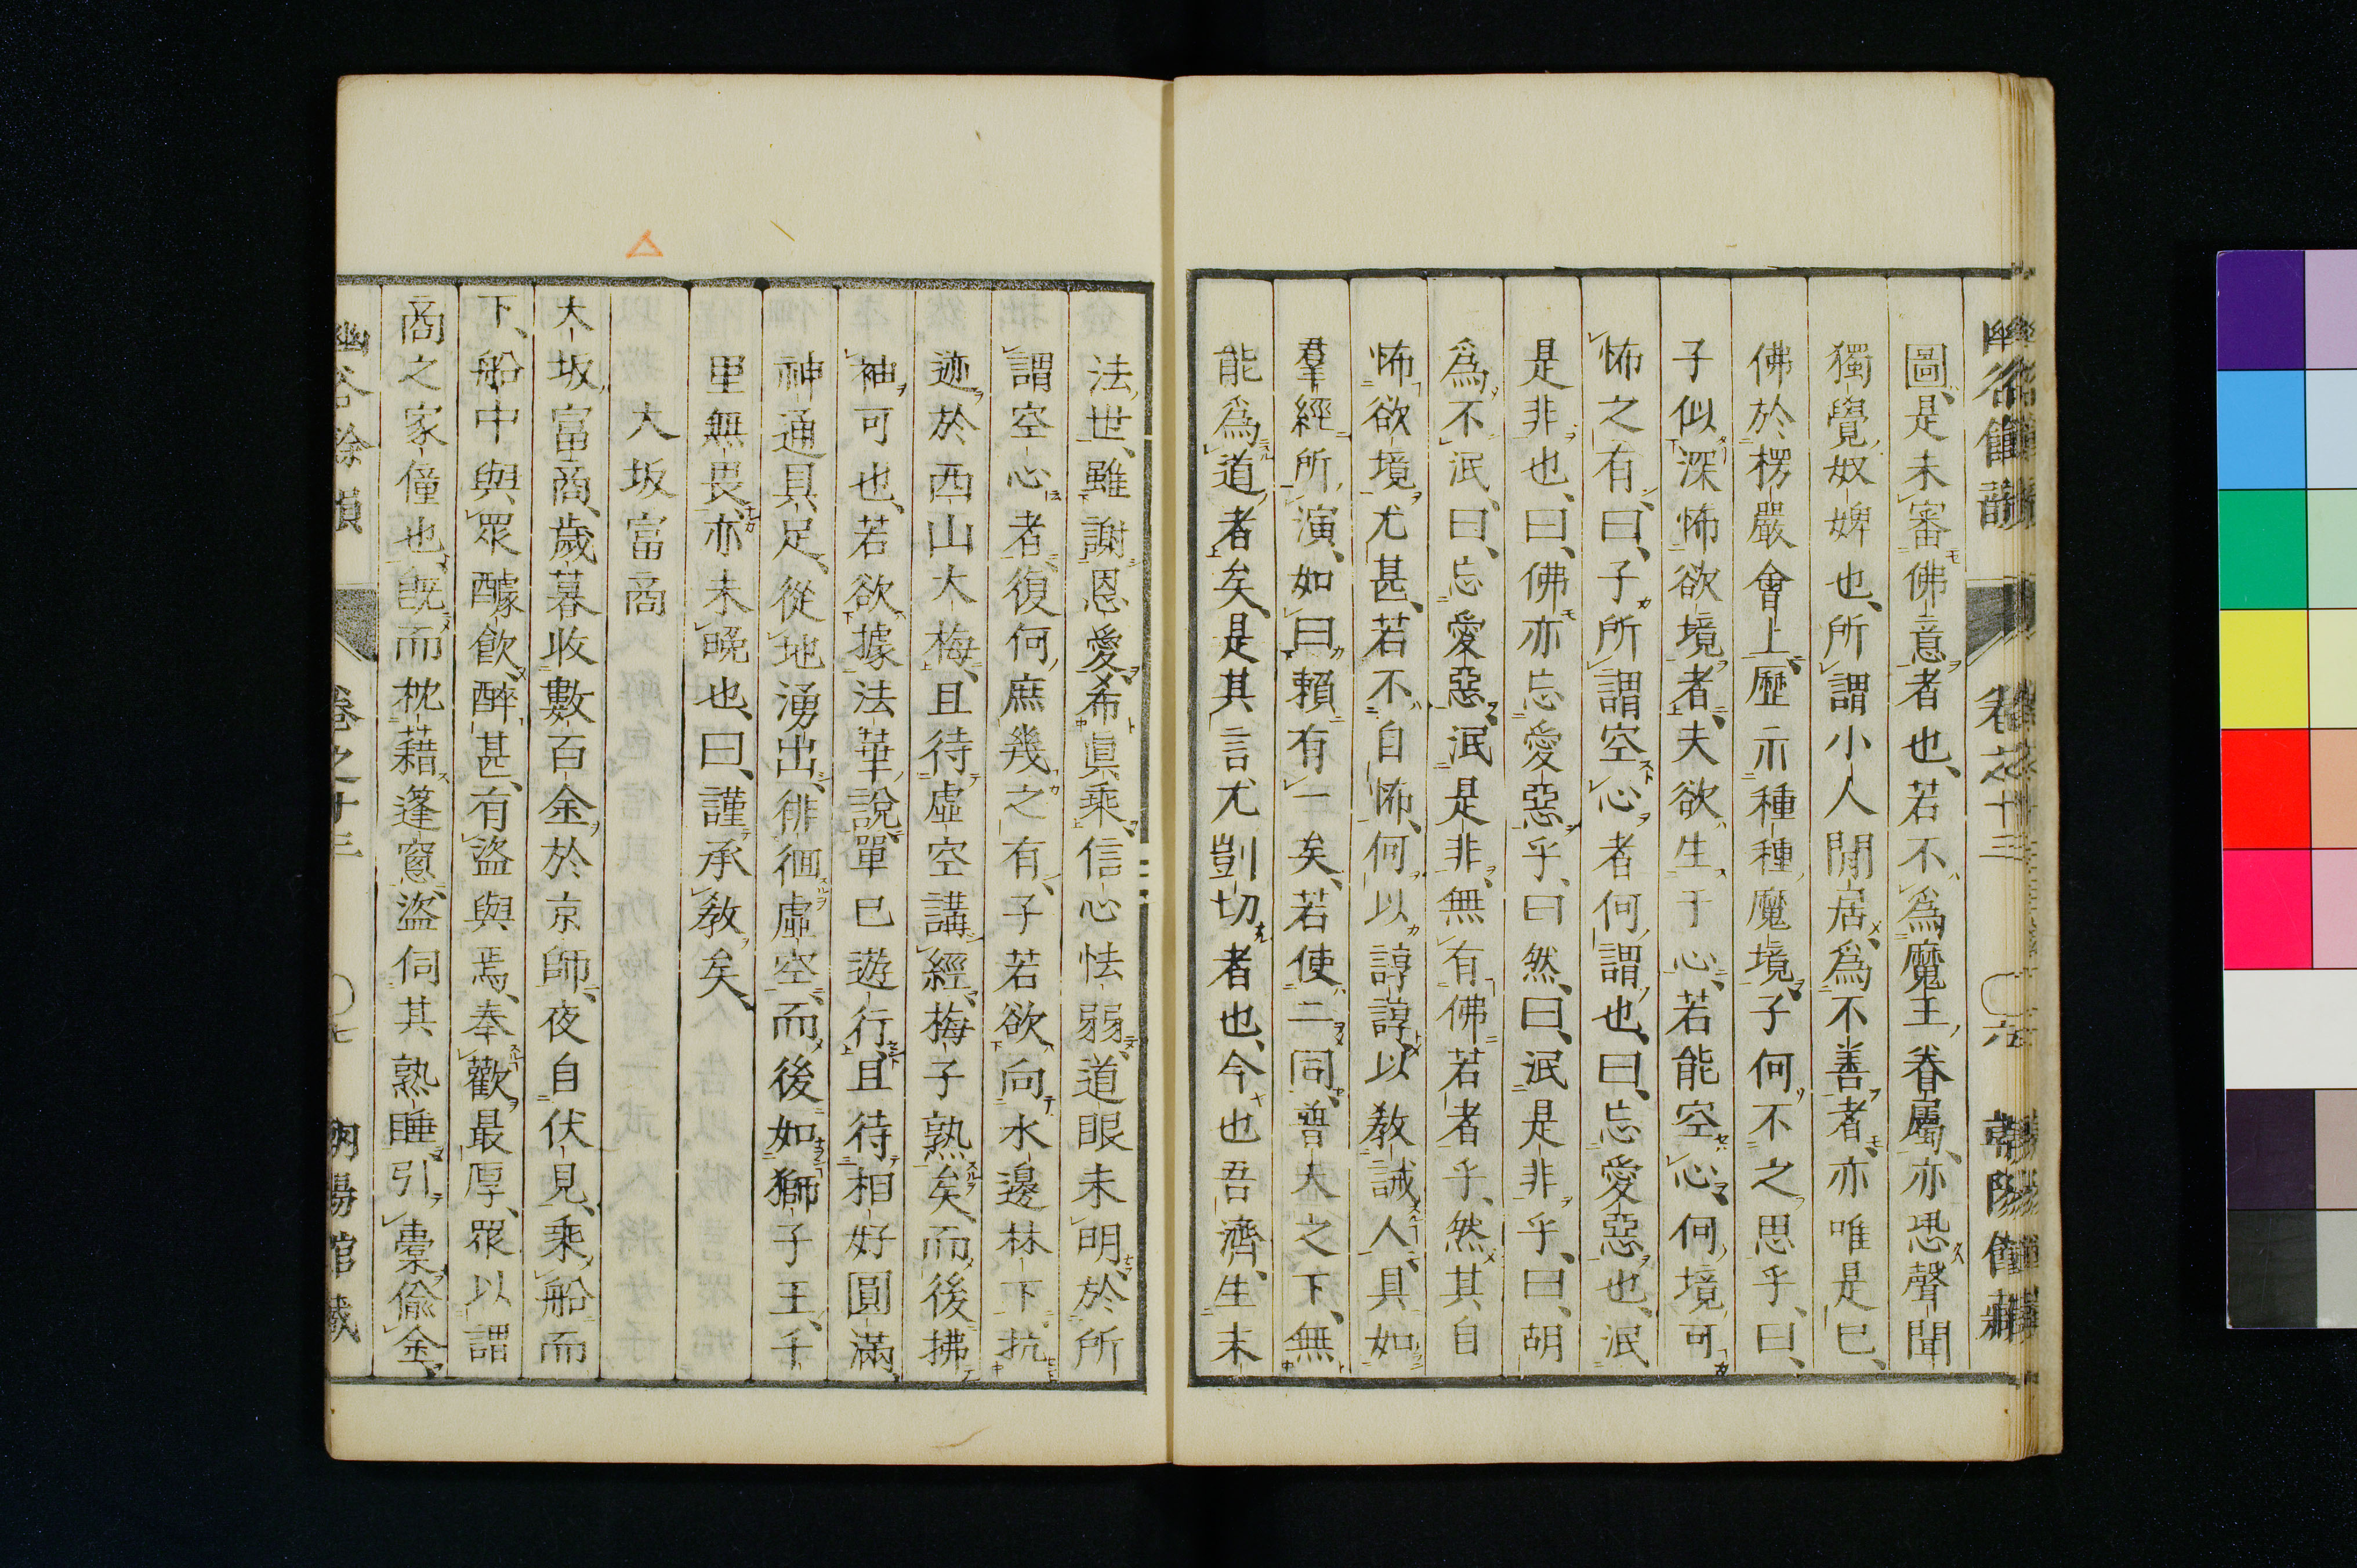 圖、是未審佛意者也、若不爲魔王眷屬、亦恐聲聞
獨覺奴婢也、所謂小人閒居、爲不善者、亦唯是已、
佛於楞嚴會上、歷示種種魔境、子何不之思乎、曰、
子似深怖欲境者、夫欲生于心、若能空心、何境可
怖之有、曰、子所謂空心者何謂也、曰、忘愛惡也、泯
是非也、曰、佛亦忘愛惡乎、曰然、曰、泯是非乎、曰、胡
爲不泯、曰、忘愛惡、泯是非、無有佛若者乎、然其自
怖欲境尤甚、若不自怖、何以諄諄以教誡人、具如
羣經所演、如曰賴有一矣、若使二同、普天之下、無
能爲道者矣、是其言尤剴切者也、今也吾濟、生末
法世、雖謝恩愛、希眞乘、信心怯弱、道眼未明、於所
謂空心者、復何庶幾之有、子若欲向水邊林下、抗
迹於西山大梅、且待虛空講經、梅子熟矣、而後拂
袖可也、若欲據法華說、單已遊行、且待相好圓滿、
神通具足、從地湧出、徘徊虛空、而後如獅子王、千
里無畏、亦未晚也、曰、謹承教矣、
大坂富商
大坂富商、歲暮收數百金於京師、夜自伏見、乘船而
下、船中與眾醵飲、醉甚、有盜與焉、奉歡最厚、眾以謂
商之家僮也、既而枕藉篷窻、盜伺其熟睡、引橐偷金、
卷之十三